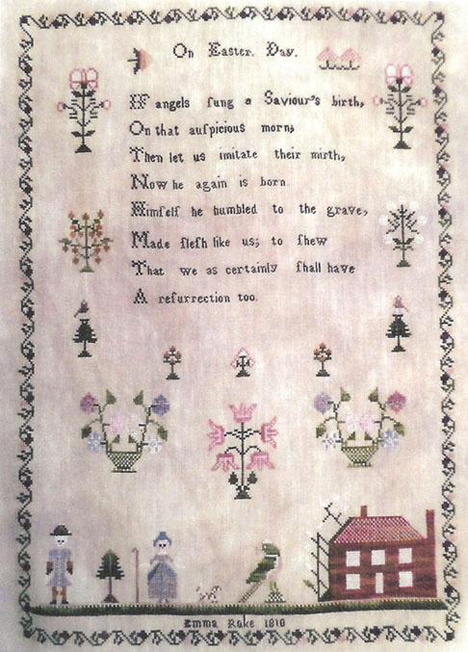 On Easter Day.
If angels ſung a Saviour's birth,
On that auſpicious morn;
Then let us imitate their mirth,
Now he again is born.
Himſelf he humbled to the grave,
Made fleſh like us; to ſhew
That we as certainly ſhall have
A reſurrection too.
Emma Rake 1810